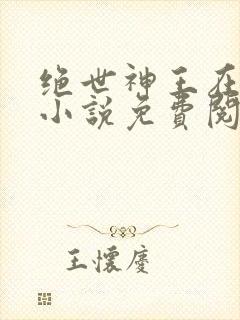 绝世神王在
小说免費閱
王懷慶